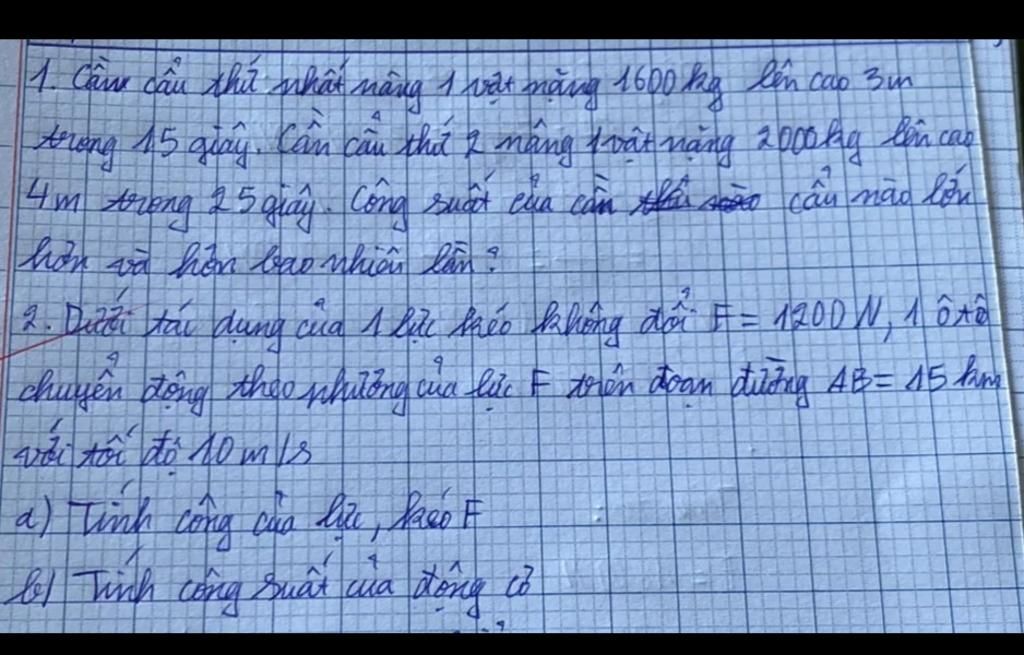 1. Cần cẩu thứ nhất nâng 1 vật nặng 1600kg lên cao 3m
trong 15 giây. Cần cẩu thứ 2 nâng 1 vật nặng 2000kg lên cao
4m trong 25 giây. Công suất của cần cẩu nào lớn
hơn và hơn bao nhiêu lần?
2. Dưới tác dụng của 1 lực kéo không đổi F = 1200N, 1 ô tô
chuyển động theo phương của lực F trên đoạn đường AB = 15 km
với tốc độ 10 m/s
a) Tính công của lực, kéo F
b) Tính công suất của động cơ